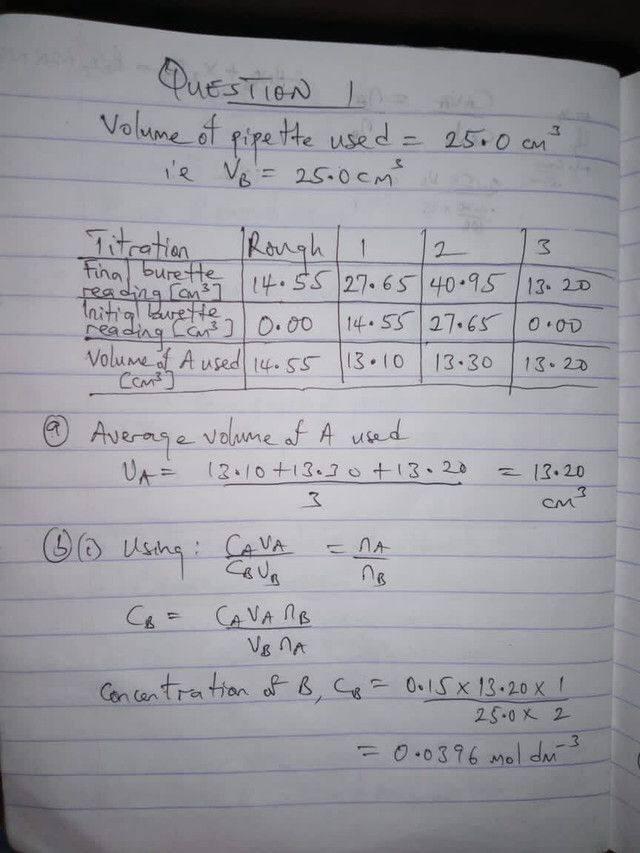 QUESTION 1
Volume of pipette used = 25.0 cm³
i.e V_B = 25.0 cm³
Titration | Rough | 1 | 2 | 3
Final burette reading [cm³] | 14.55 | 27.65 | 40.95 | 13.20
Initial burette reading [cm³] | 0.00 | 14.55 | 27.65 | 0.00
Volume of A used [cm³] | 14.55 | 13.10 | 13.30 | 13.20
(a) Average volume of A used
V_A = (13.10 + 13.30 + 13.20) / 3 = 13.20 cm³
(b)(i) Using: C_A V_A / C_B V_B = n_A / n_B
C_B = C_A V_A n_B / V_B n_A
Concentration of B, C_B = 0.15 × 13.20 × 1 / 25.0 × 2
= 0.0396 mol dm⁻³